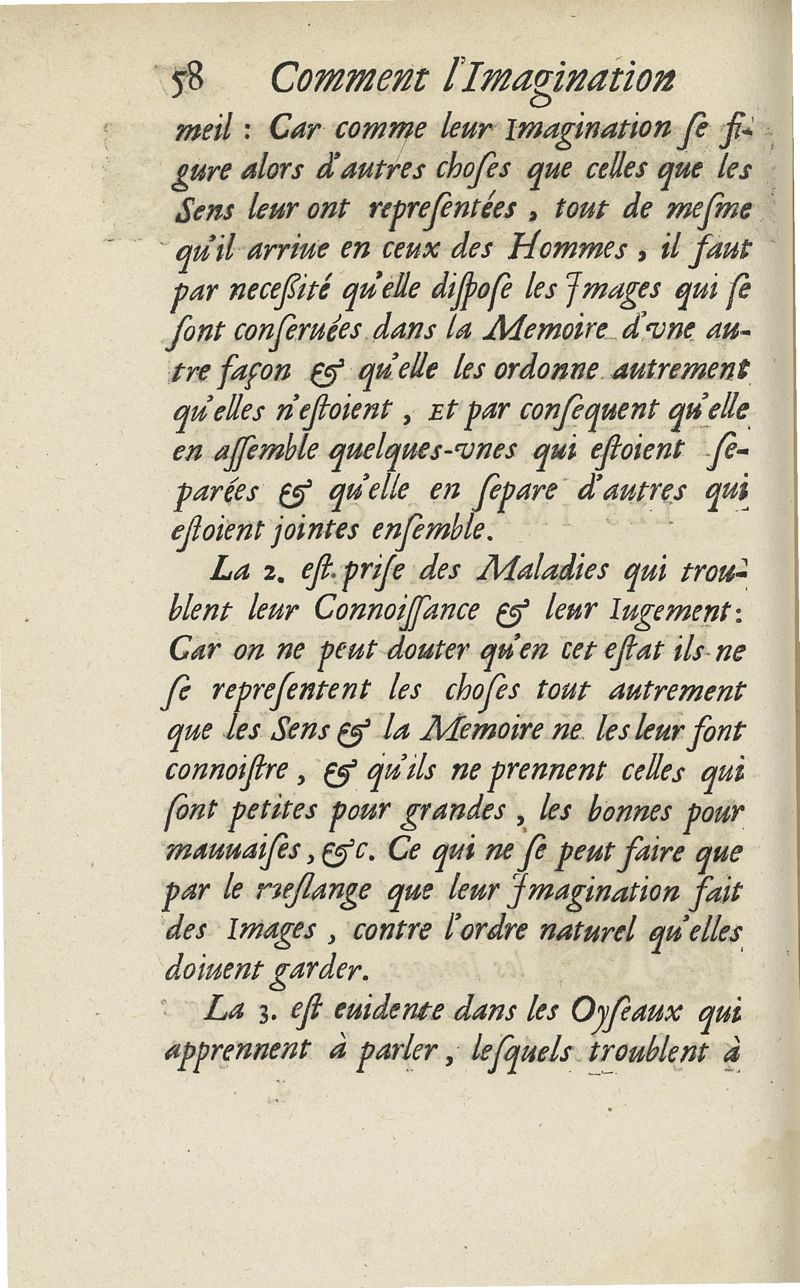 58 Comment l'Imagination
meil : Car comme leur Imagination ſe fi-
gure alors d'autres choſes que celles que les
Sens leur ont repreſentées , tout de meſme
qu'il arriue en ceux des Hommes , il faut
par neceßité qu'elle diſpoſe les Images qui ſe
ſont conſeruées dans la Memoire d'vne au-
tre façon & qu'elle les ordonne autrement
qu'elles n'eſtoient , Et par conſequent qu'elle
en aſſemble quelques-vnes qui eſtoient ſe-
parées & qu'elle en ſepare d'autres qui
eſtoient jointes enſemble.
La 2. eſt priſe des Maladies qui trou-
blent leur Connoiſſance & leur Iugement :
Car on ne peut douter qu'en cet eſtat ils ne
ſe repreſentent les choſes tout autrement
que les Sens & la Memoire ne les leur font
connoiſtre , & qu'ils ne prennent celles qui
ſont petites pour grandes , les bonnes pour
mauuaiſes , &c. Ce qui ne ſe peut faire que
par le meſlange que leur Imagination fait
des Images , contre l'ordre naturel qu'elles
doiuent garder.
La 3. eſt euidente dans les Oyſeaux qui
apprennent à parler , leſquels troublent à